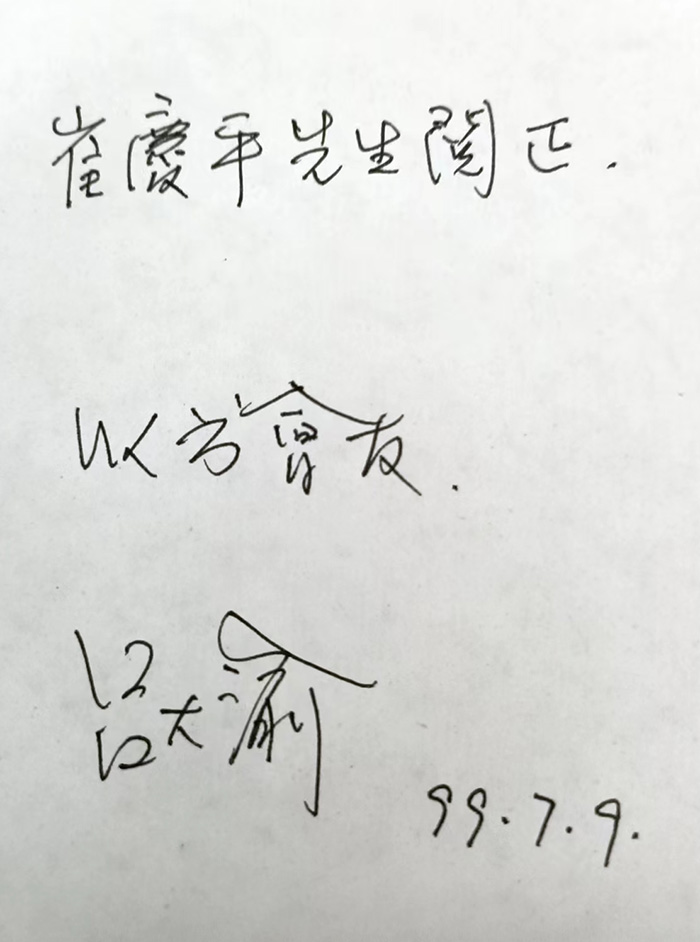 崔慶平先生閱正.
以文會友.
呂大渝
99.7.9.